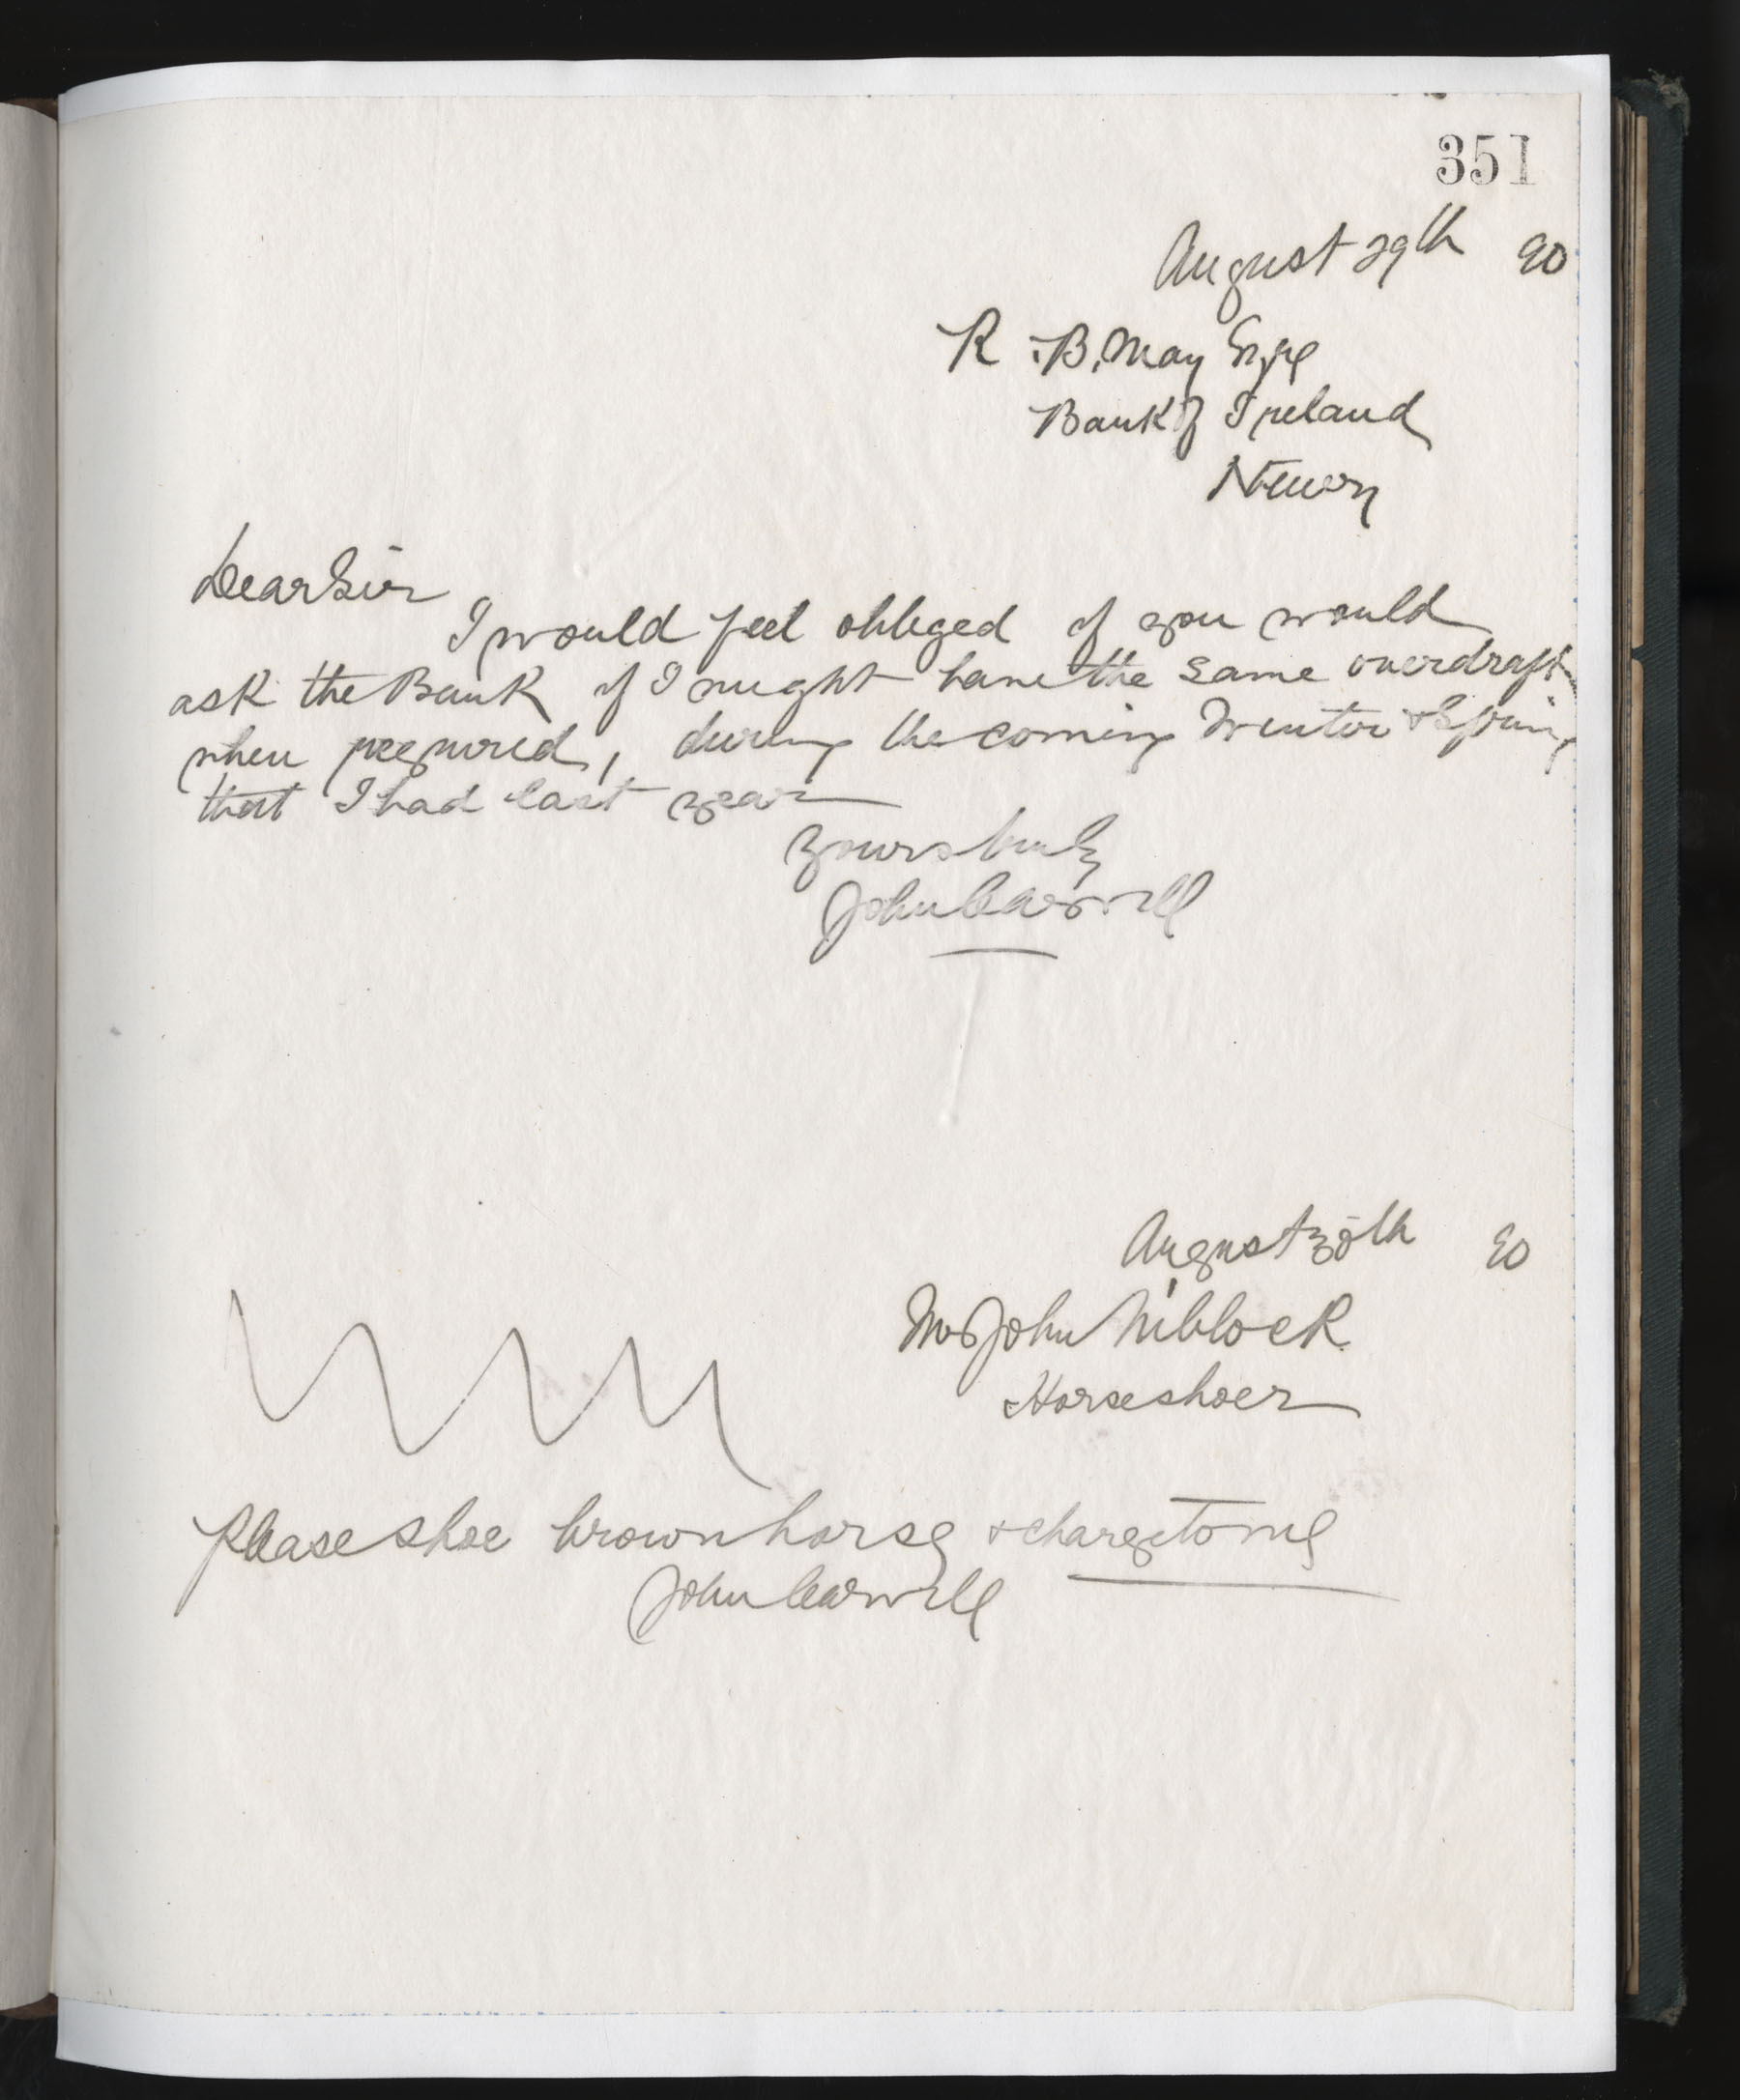 351
August 29th 90
R. B. May Esqre
Bank of Ireland
Newry
Dear Sir
I would feel obliged if you would
ask the Bank if I might have the same overdraft
when required, during the coming Winter & Spring
that I had last year
Yours truly
John Carvill
August 30th 90
Mr John Niblock
Horseshoer
Please shoe brown horse & charge to me
John Carvill